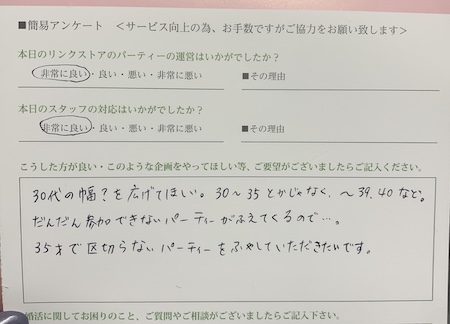 ■簡易アンケート ＜サービス向上の為、お手数ですがご協力をお願い致します＞
本日のリンクストアのパーティーの運営はいかがでしたか？
非常に良い・良い・悪い・非常に悪い ■その理由
本日のスタッフの対応はいかがでしたか？
非常に良い・良い・悪い・非常に悪い ■その理由
こうした方が良い・このような企画をやってほしい等、ご要望がございましたらご記入ください。
30代の幅？を広げてほしい。30〜35とかじゃなく、〜39,40など。
だんだん参加できないパーティーがふえてくるので…。
35才で区切らないパーティーをふやしていただきたいです。
婚活に関してお困りのこと、ご質問やご相談がございましたらご記入下さい。